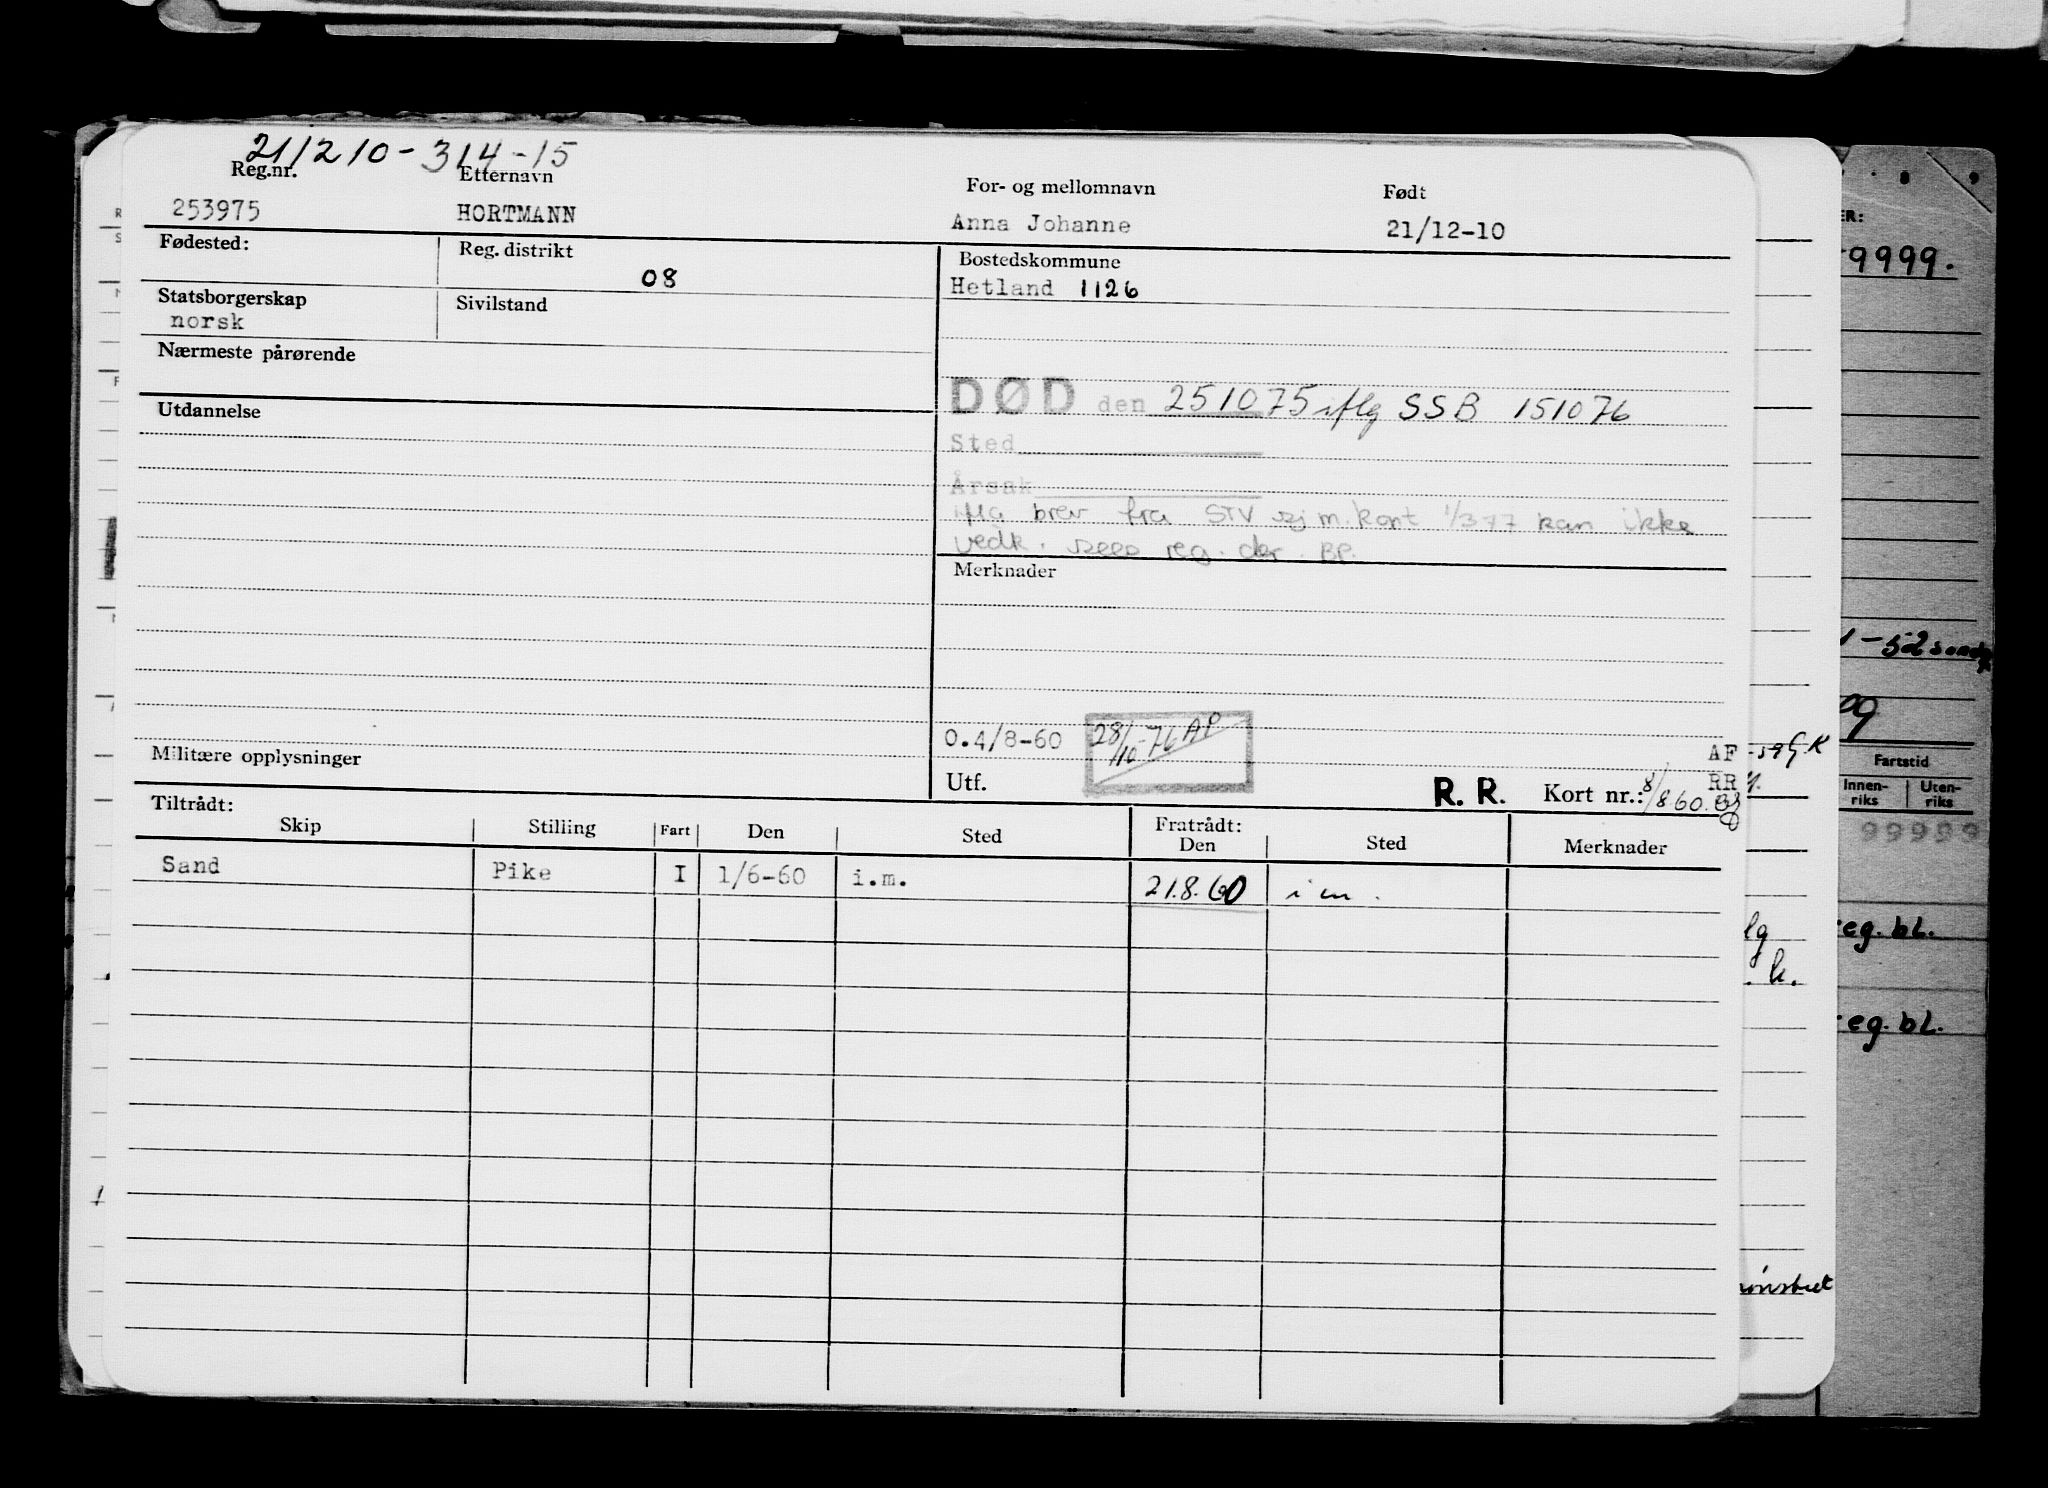 211210-314-15
Reg.nr. Etternavn For- og mellomnavn Født
253975 HORTMANN Anna Johanne 21/12-10
Fødested: Reg. distrikt Bostedskommune
08 Hetland 1126
Statsborgerskap Sivilstand
norsk
Nærmeste pårørende
DØD den 251075 iflg SSB 151076
Utdannelse
Sted
Årsak
iflg brev fra STV sjm.kont 1/3-77 kan ikke
vedk. reg. der. BP.
Merknader
O.4/8-60 28/10-76 AP
Militære opplysninger
AF
RR
Utf. R. R. Kort nr.: 8/860.
Tiltrådt: Fratrådt:
Skip Stilling Fart Den Sted Den Sted Merknader
Sand Pike I 1/6-60 i.m. 21.8.60 i m.
ER:
9999.
Fartstid
Innen-riks Uten-riks
99999
eg. bl.
k.
eg. bl.